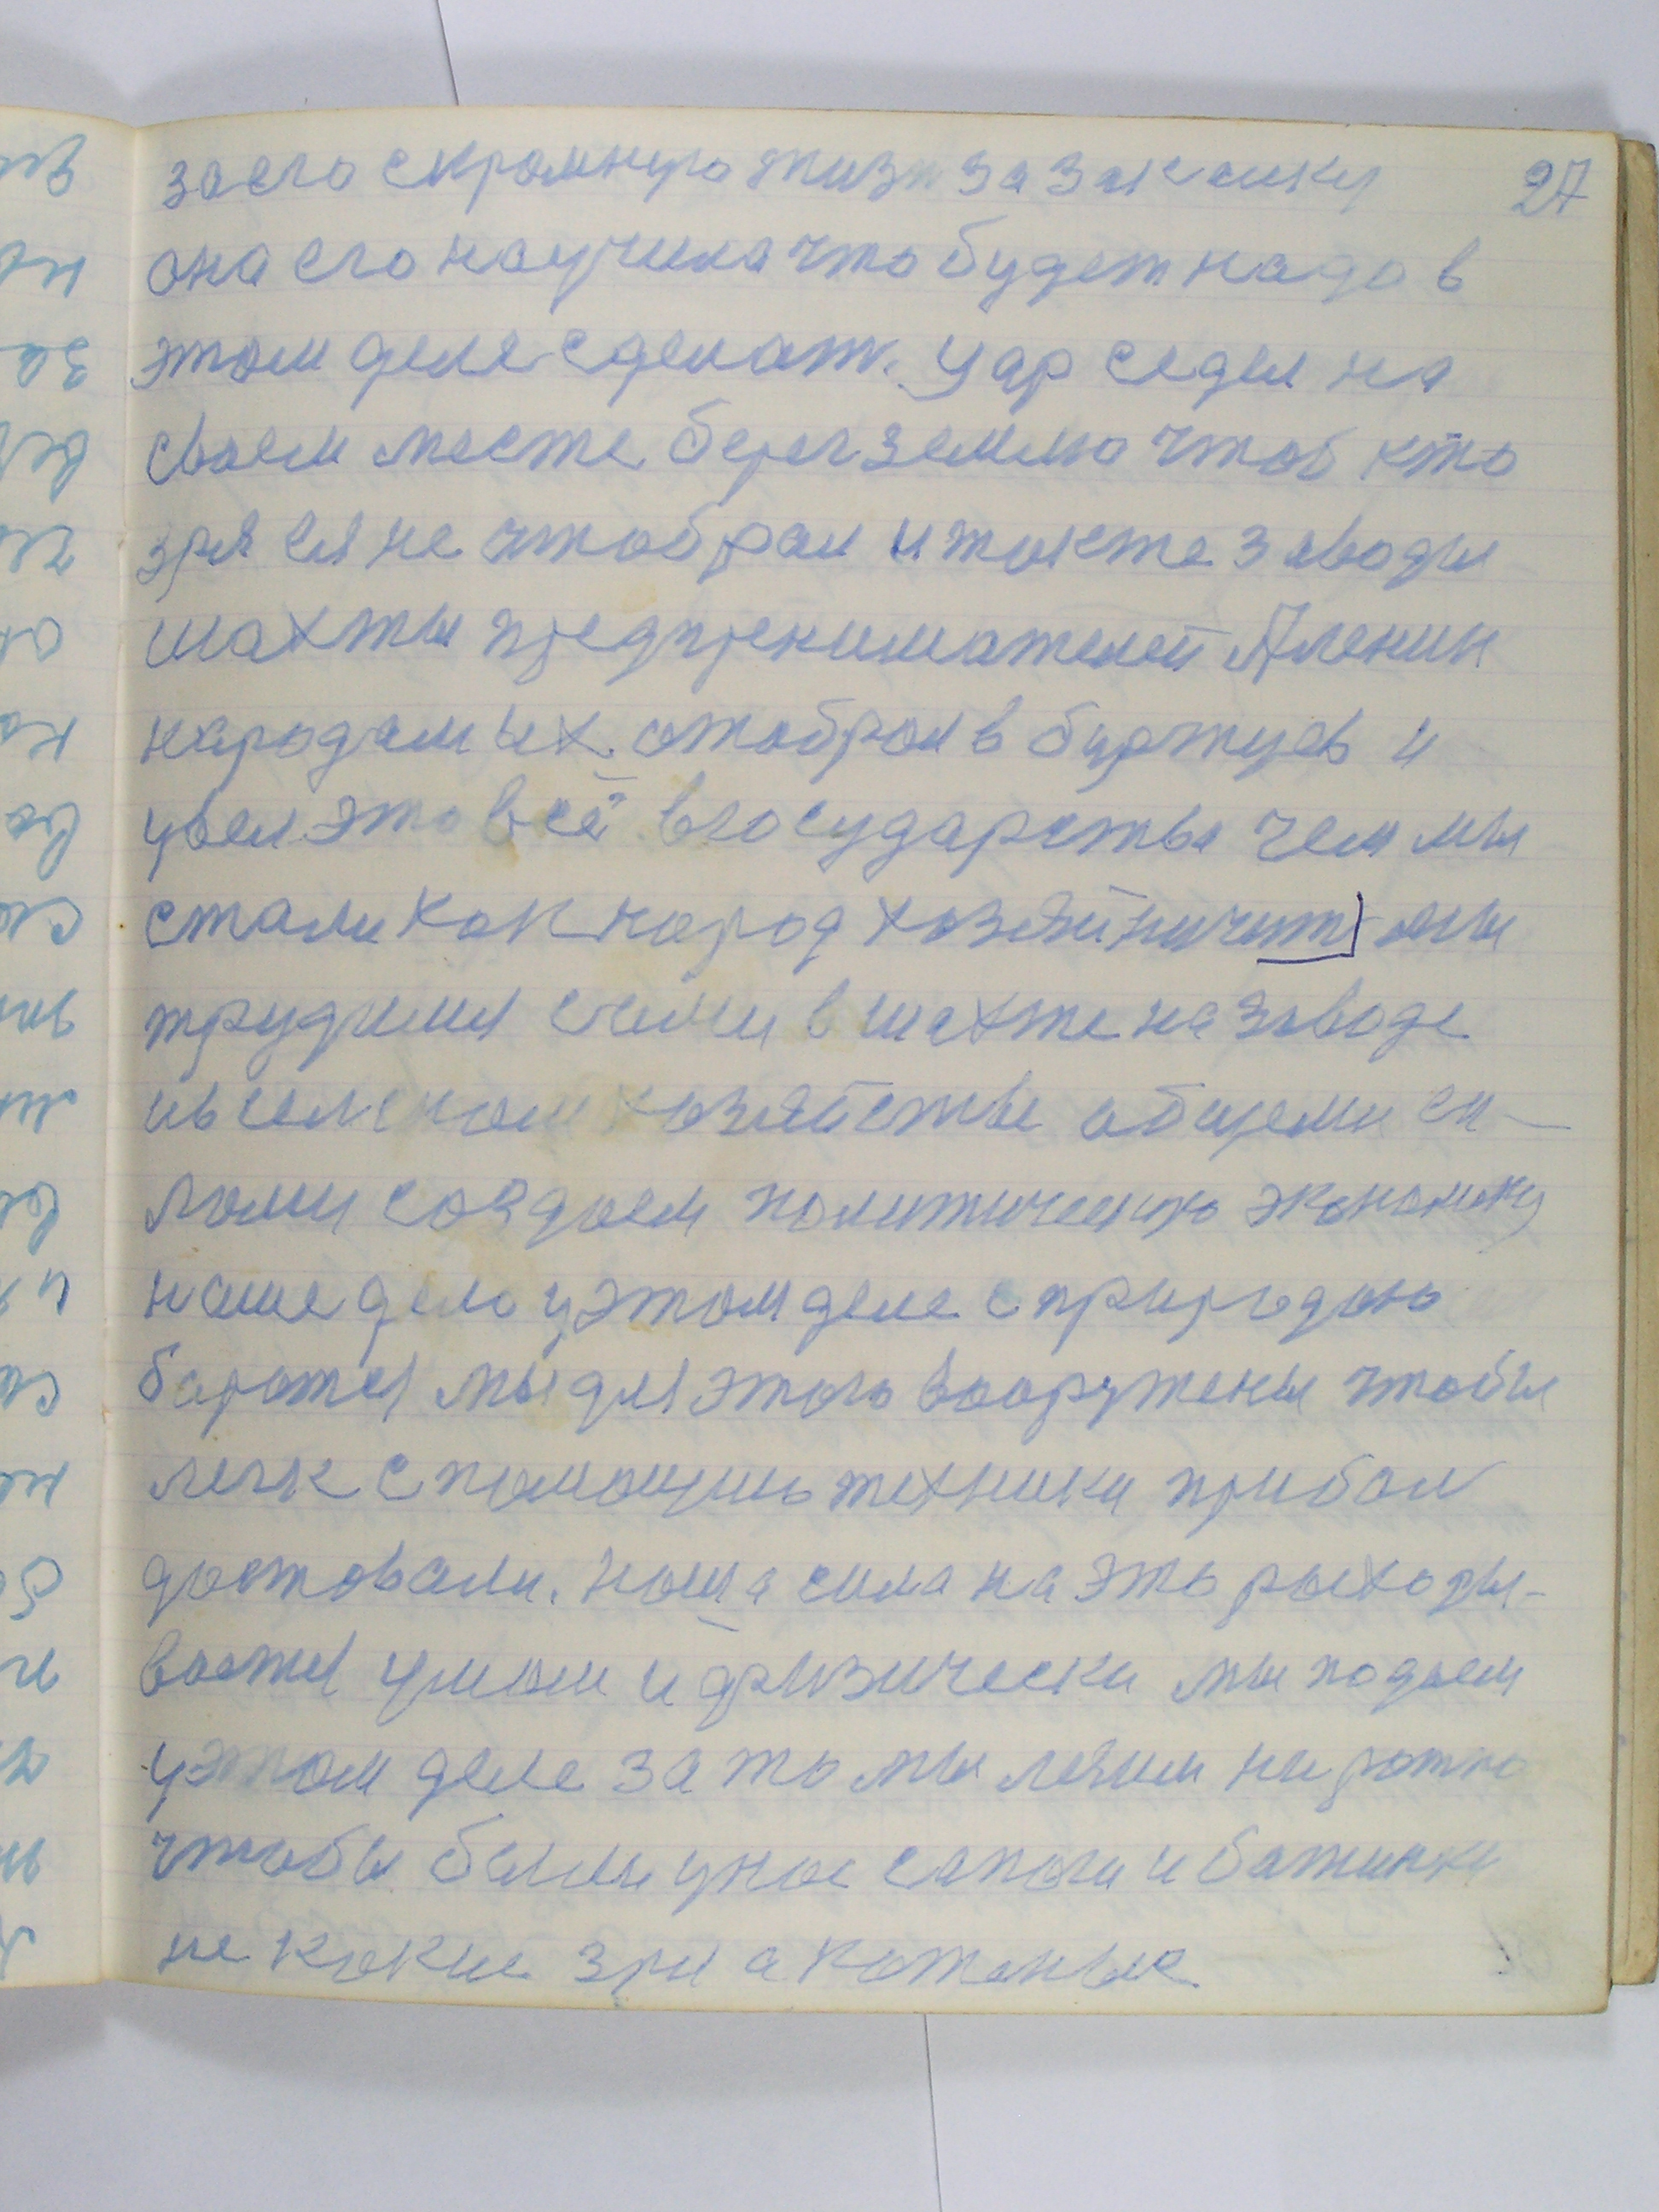 27
за его скромную жизн за закалку
она его научила что будет надо в
этом деле сделат. Цар седел на
своем месте берег землю чтоб кто
зря ея не отобрал и также заводы
шахты предпренимателей А Ленин
народам их отобрал в буржуев и
увел это всё в государства чем мы
стали как народ хозяйничит мы
трудимся сами в шахте на заводе
и в селском хозяйстве общеми си-
лами создаем политическую экономику
наше дело у этом деле с природою
баротся мы для этого вооружены чтобы
легк с помощию техники прибал
доставали. Наша сила на это расходы-
вается умом и физически мы подаем
у этом деле за то мы лезим на ражно
чтобы были у нас сапоги и батинки
не какие зри а кожаные